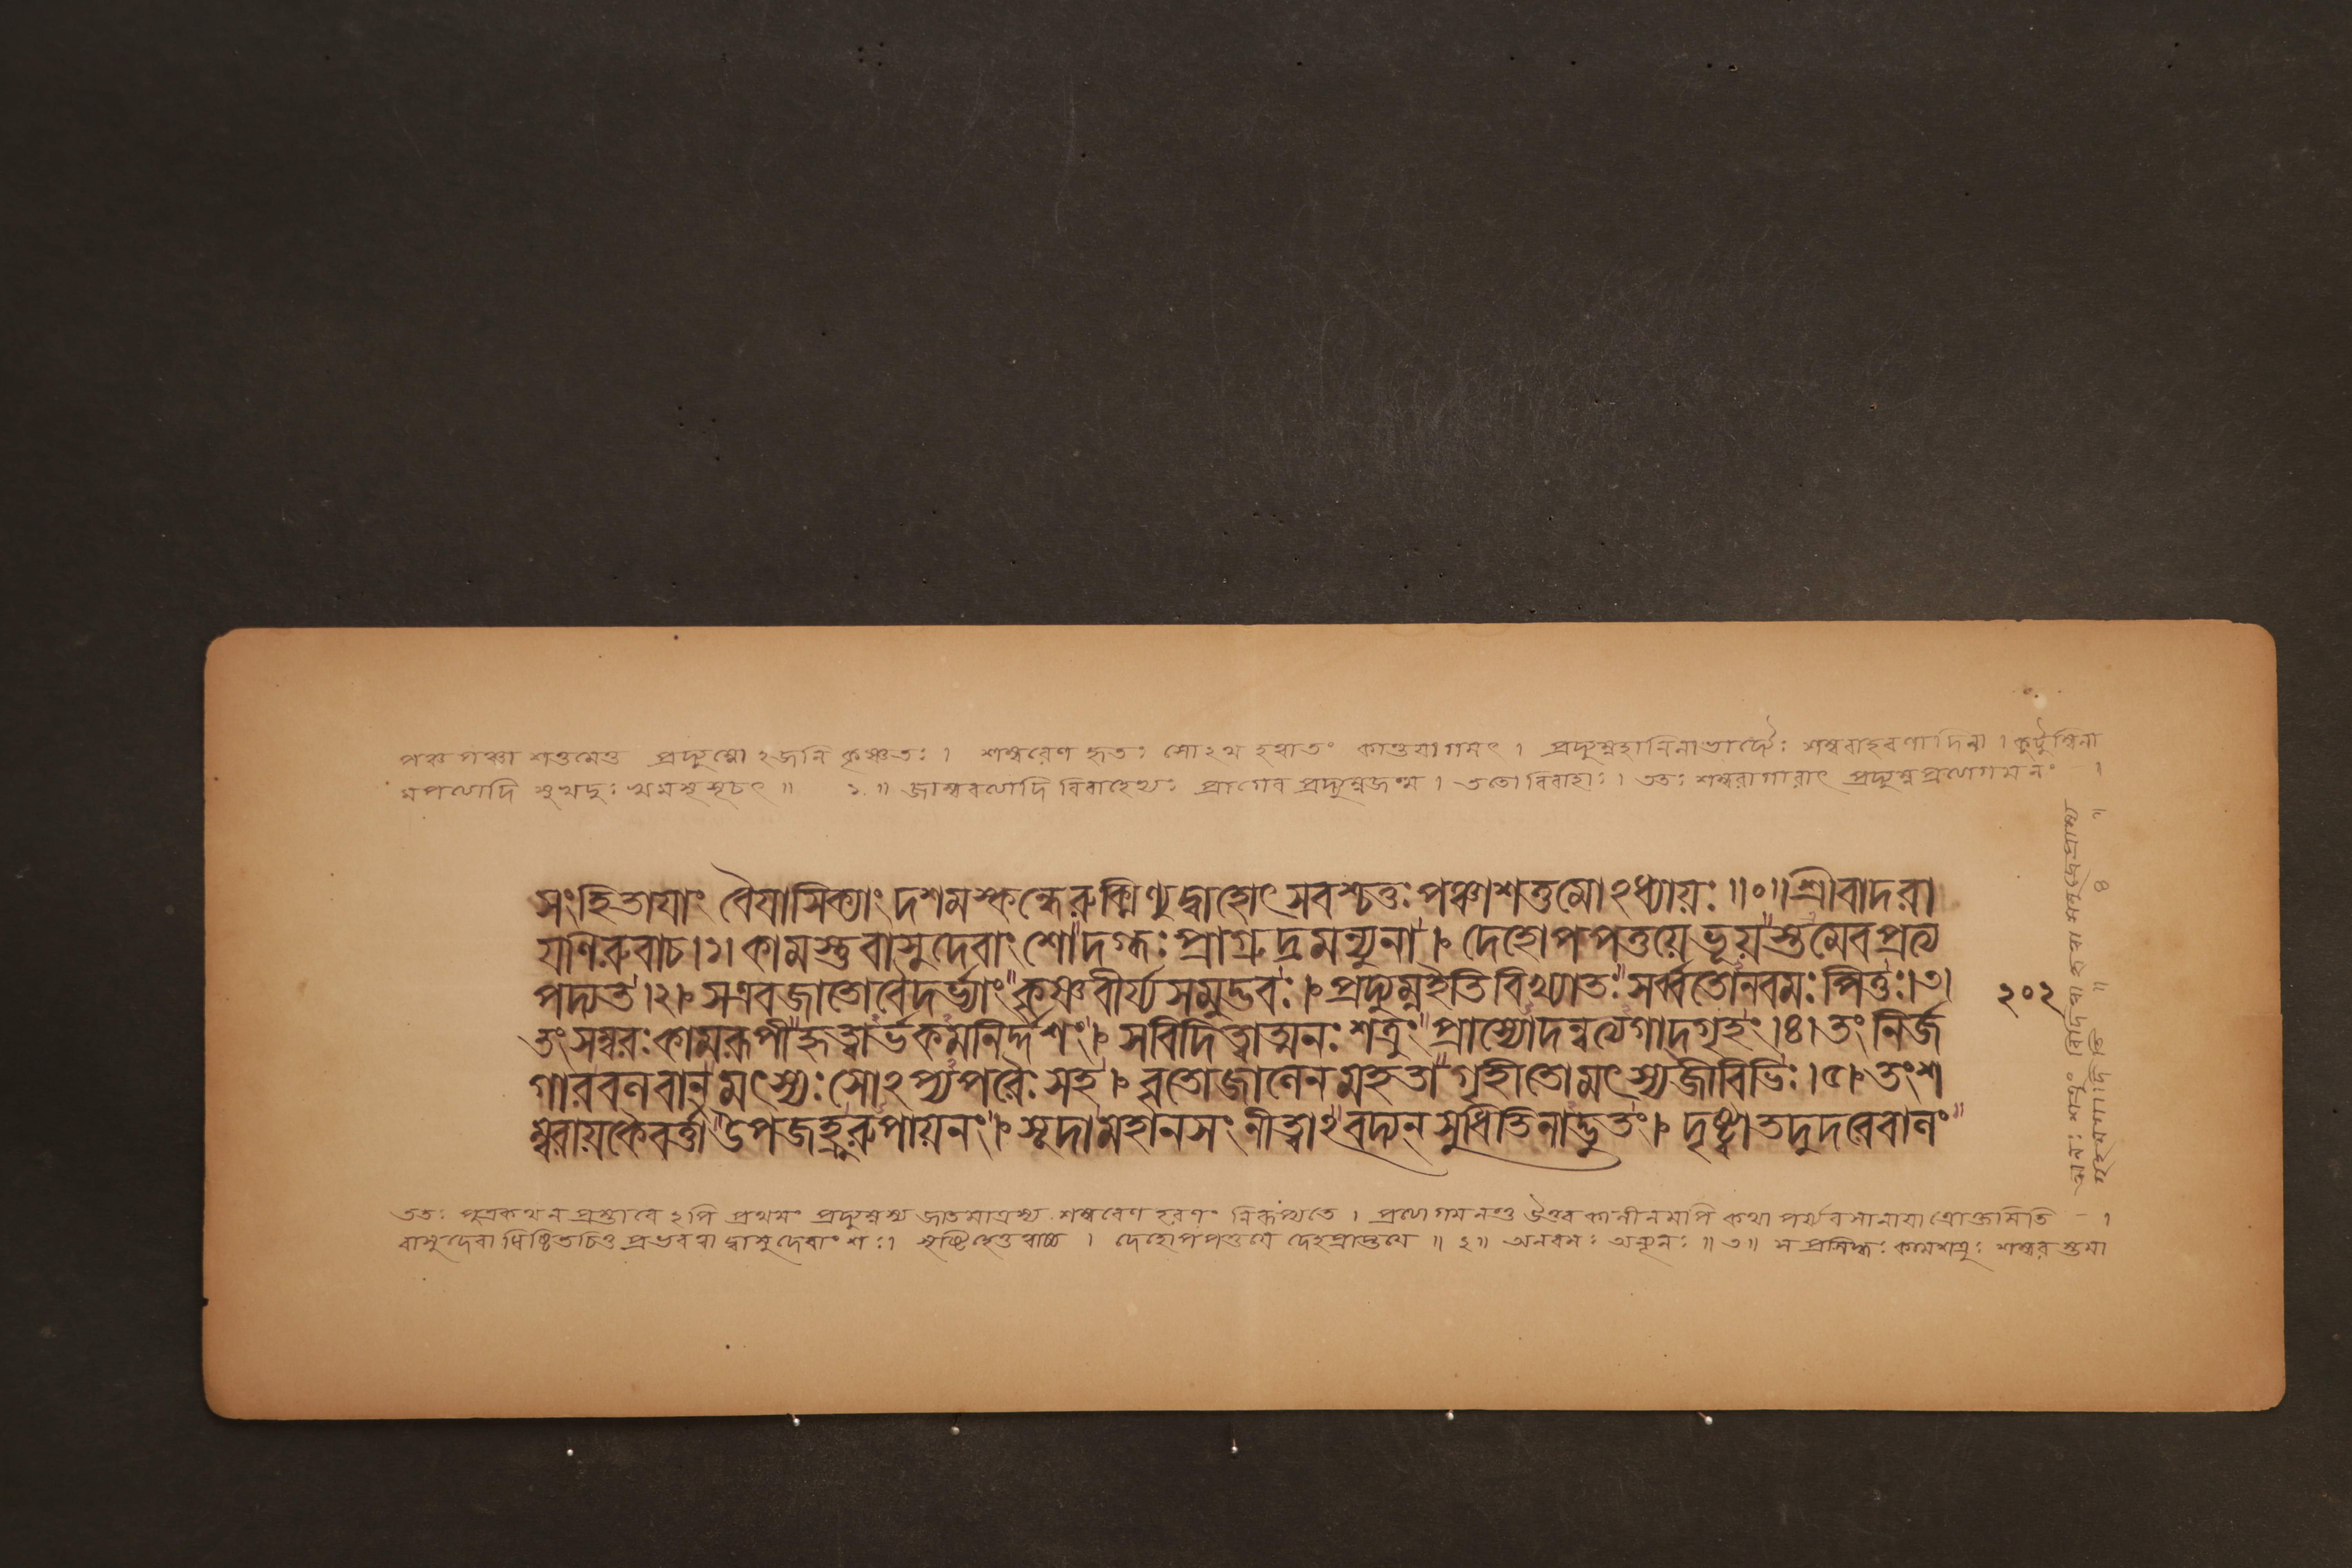 পঞ্চ পঞ্চাশত্তমেতু প্রদ্যুম্নো ঽজনি কৃষ্ণতঃ । শম্বরেণ হৃতঃ সোঽথ হত্বাতং কান্তয়াগমৎ । প্রদ্যুম্নহানিলাভাদ্যৈঃ শম্বরাহরণাদিনা । কুটুম্বিনা
মপত্যাদি সুখদুঃখমসূসুচৎ ॥ ১ ॥ জাম্ববত্যাদি বিবাহেভ্যঃ প্রাগেব প্রদ্যুম্নজন্ম । ততো বিবাহাঃ । ততঃ শম্বরাগারাৎ প্রদ্যুম্ন প্রত্যাগমনং ।
সংহিতাযাং বৈযাসিক্যাং দশমস্কন্ধেরুক্মিণ্যুদ্বাহোৎসবশ্চতুঃপঞ্চাশত্তমোঽধ্যায়ঃ ॥০॥ শ্রীবাদরা
যণিরুবাচ।১। কামস্তু বাসুদেবাংশো দগ্ধঃ প্রাগ্রুদ্রমন্যুনা । দেহোপপত্তয়ে ভূয়স্তমেব প্রত্য
পদ্যত।২। সএবজাতোবৈদর্ভ্যাং কৃষ্ণবীর্য্যসমুদ্ভবঃ। প্রদ্যুম্নইতিবিখ্যাতঃ সর্ব্বতোনবমঃ পিতুঃ।৩।
২০২
তং সম্বরঃ কামরূপী হৃত্বার্ভকমনির্দ্দশং। সবিদিত্বাত্মনঃ শত্রুং প্রাস্যোদন্বত্যগাদ্গৃহং।৪। তং নির্জ
গারবলবান্ মৎস্যঃ সোঽপ্যপরৈঃ সহ। বৃতোজালেন মহতা গৃহীতোমৎস্যজীবিভিঃ।৫। তংশ
ম্বরায়কৈবর্ত্তা উপজহ্রুরুপায়নং। সূদামহানসং নীত্বাঽবদ্যন্ সুধিতিনাদ্ভুতং। দৃষ্ট্বাতদুদরেবালং
ততঃ পুত্রকথন প্রস্তাবে ঽপি প্রথমং প্রদ্যুম্নস্য জাতমাত্রস্য শম্বরেণ হরণং নিরূপ্যতে । প্রত্যাগমনন্তু উত্তর কালীনমপি কথা পর্য্যবসানায়াত্রোক্তমিতি ।
বাসুদেবাধিষ্ঠিতচিত্ত প্রভবত্বাদ্বাসুদেবাংশঃ। সৃষ্টিহেতুত্বাচ্চ । দেহোপপত্তয়ে দেহপ্রাপ্তয়ে ॥ ২॥ অনবমঃ অন্যূনঃ ॥ ৩॥ স প্রসিদ্ধঃ কামশত্রুঃ শম্বর স্তমা